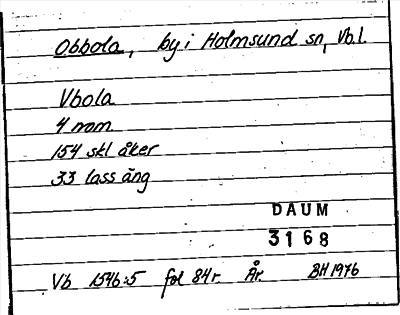 Obbola, by i Holmsund sn, Vb.l.
Vbola
4 mom
154 skl åker
33 lass äng
DAUM
3168
Vb 1546:5 fol 84r. År. BH 1976